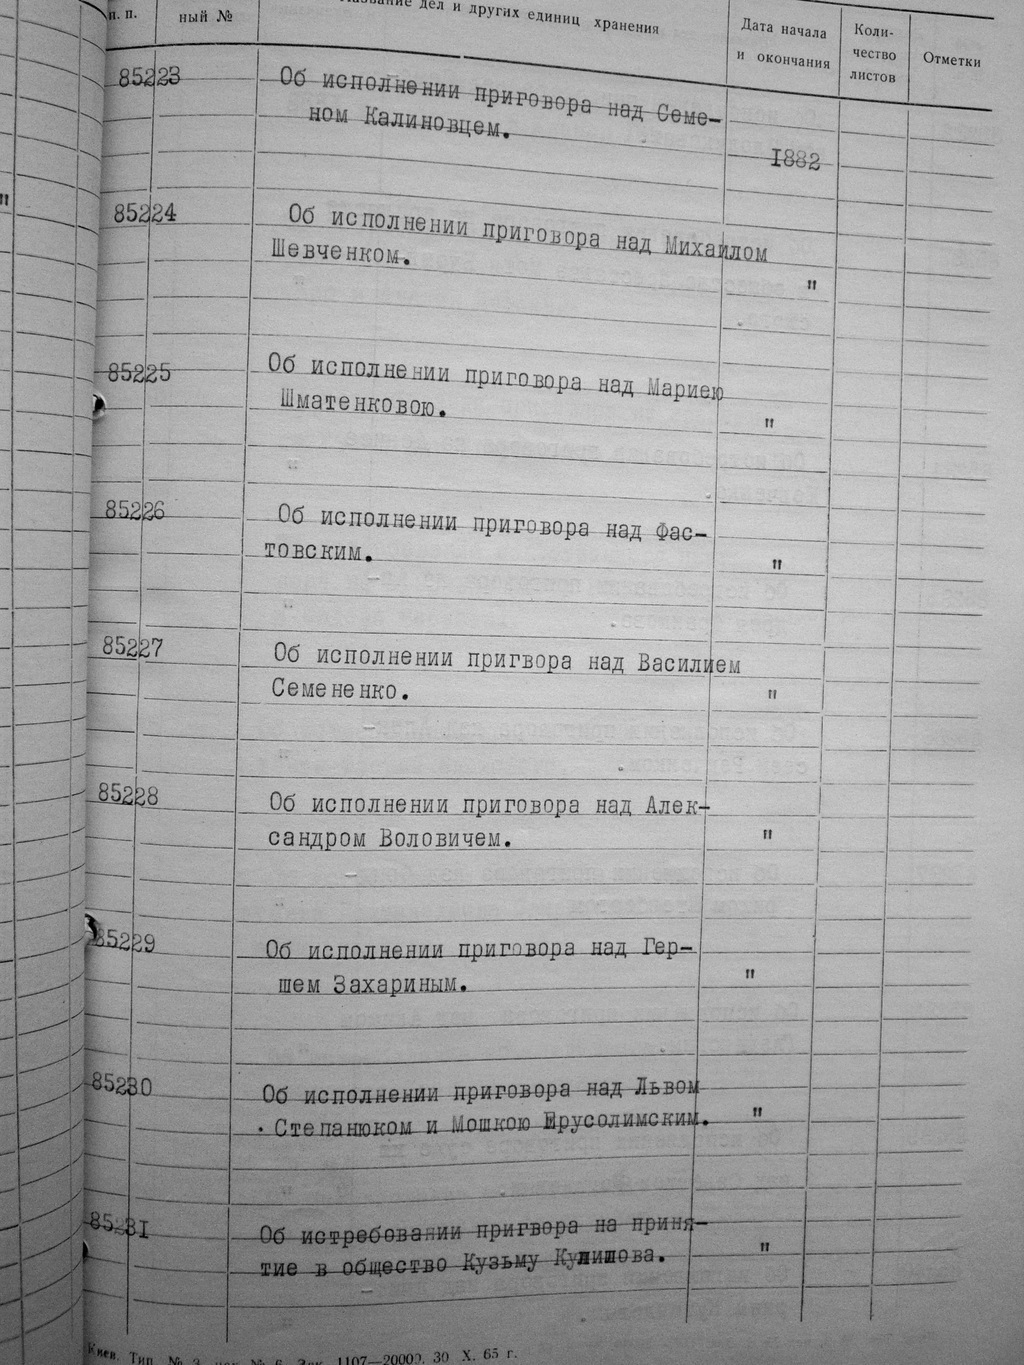 п. п. ный № Название дел и других единиц хранения Дата начала и окончания Коли-чество листов Отметки
85223 Об исполнении приговора над Семе-
ном Калиновцем.
1882
"
85224 Об исполнении приговора над Михаилом
Шевченком.
"
85225 Об исполнении приговора над Мариею
Шматенковою.
"
85226 Об исполнении приговора над Фас-
товским.
"
85227 Об исполнении пригвора над Василием
Семененко.
"
85228 Об исполнении приговора над Алек-
сандром Воловичем.
"
85229 Об исполнении приговора над Гер-
шем Захариным.
"
85230 Об исполнении приговора над Львом
Степанюком и Мошкою Ерусолимским.
"
85231 Об истребовании пригвора на приня-
тие в общество Кузьму
"
Киев. Тип. № 3, Зак. 1107—20000. 30 X. 65 г.